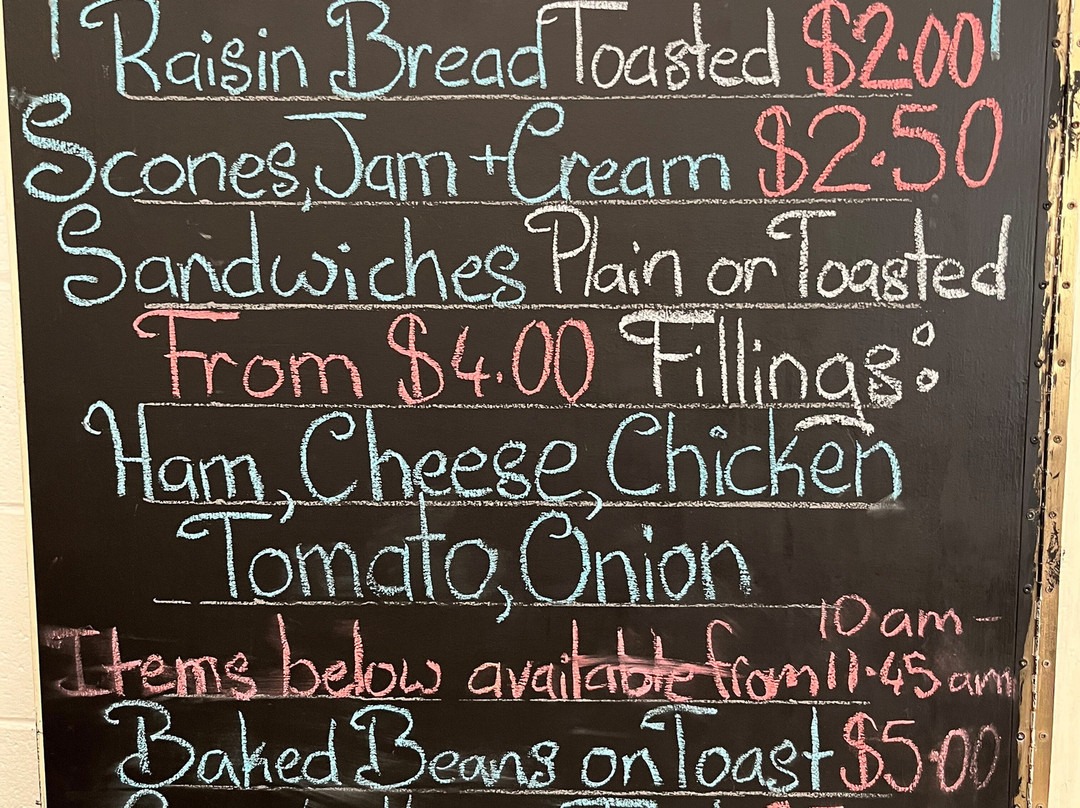 Raisin Bread Toasted $2.00
Scones, Jam + Cream $2.50
Sandwiches Plain or Toasted
From $4.00 Fillings:
Ham, Cheese, Chicken
Tomato, Onion
10 am -
Items below available from 11.45 am
Baked Beans on Toast $5.00